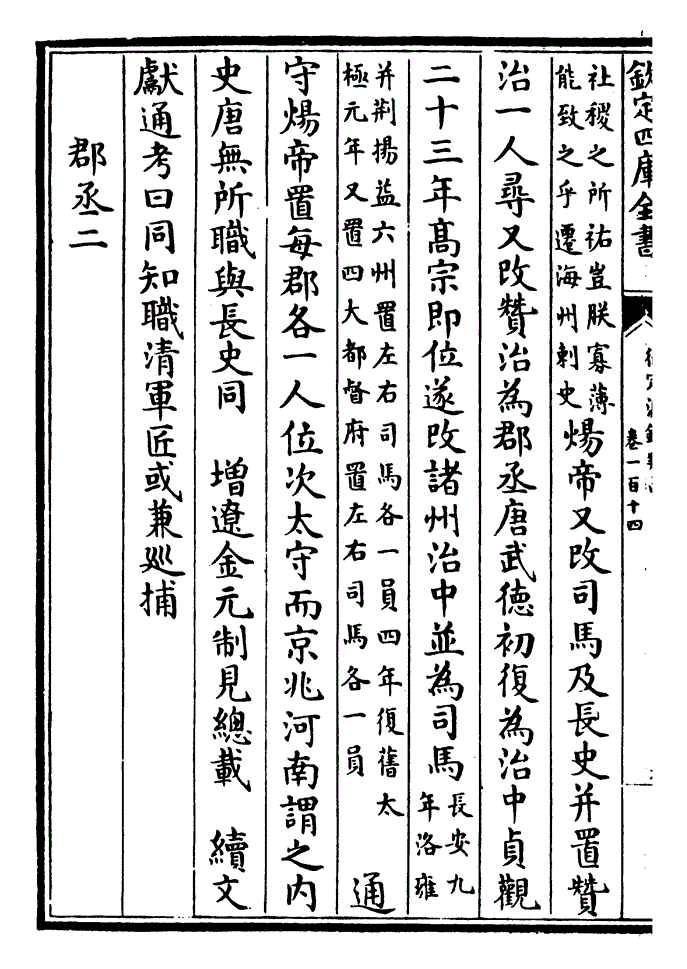 欽定四庫全書
卷一百十四
社稷之所祐豈朕寡薄
能致之乎遷海州刺史
煬帝又改司馬及長史并置贊
治一人尋又改贊治為郡丞唐武德初復為治中貞觀
二十三年髙宗即位遂改諸州治中並為司馬
長安九
年洛雍
并荆揚益六州置左右司馬各一員四年復舊太
極元年又置四大都督府置左右司馬各一員
通
守煬帝置每郡各一人位次太守而京兆河南謂之内
史唐無所職與長史同　增遼金元制見總載　續文
獻通考曰同知職清軍匠或兼廵捕
郡丞二